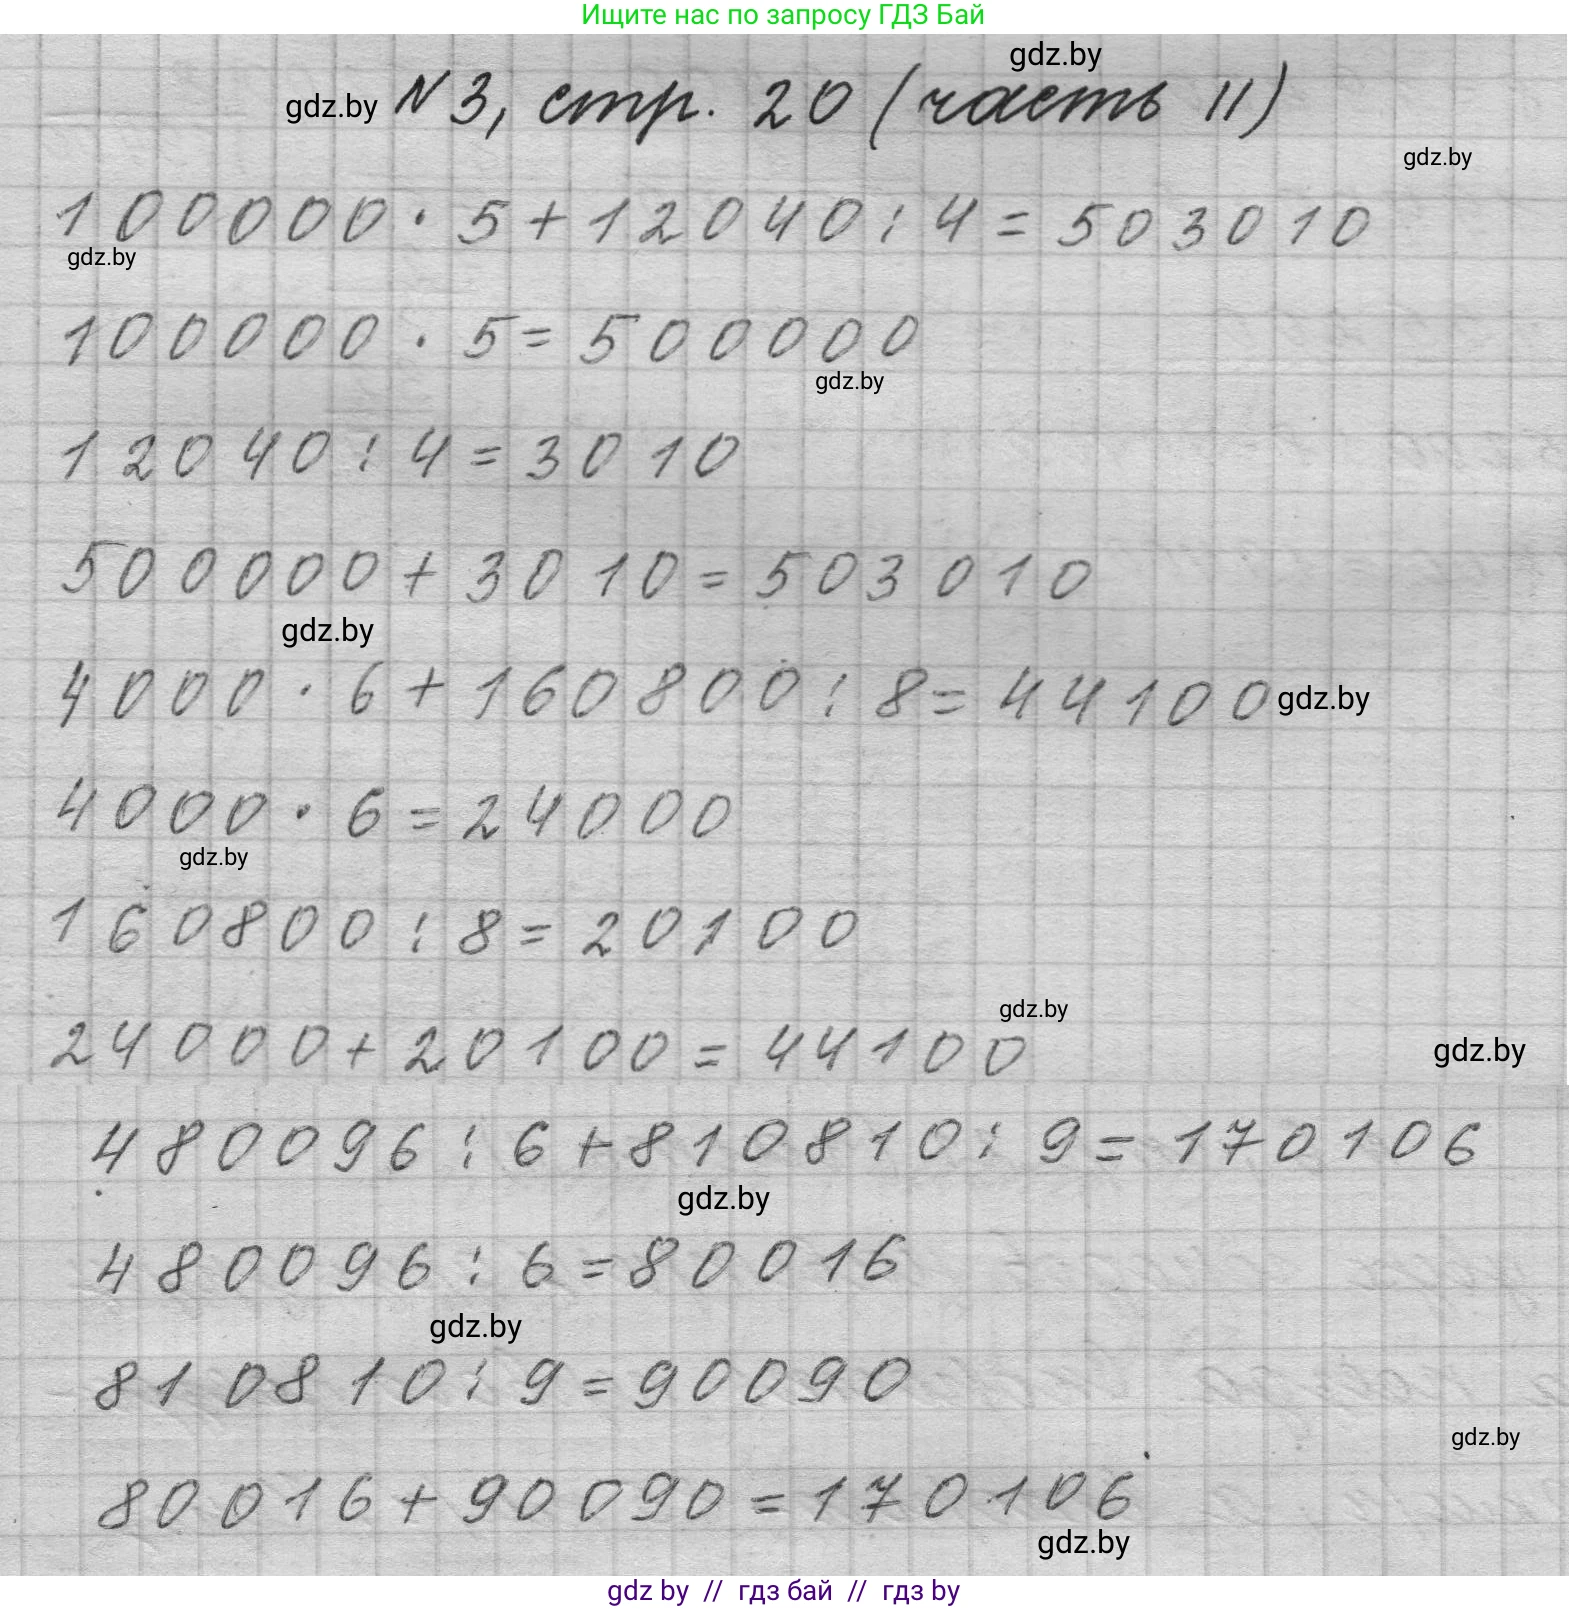 Ищите нас по запросу ГДЗ Бай
gdz.by
gdz.by N 3, стр. 20 (часть II)
gdz.by
100000 · 5 + 12040 : 4 = 503010
gdz.by
100000 · 5 = 500000
gdz.by
12040 : 4 = 3010
500000 + 3010 = 503010
gdz.by
4000 · 6 + 160800 : 8 = 44100 gdz.by
4000 · 6 = 24000
gdz.by
160800 : 8 = 20100
gdz.by
24000 + 20100 = 44100 gdz.by
480096 : 6 + 810810 : 9 = 170106
gdz.by
480096 : 6 = 80016
gdz.by
810810 : 9 = 90090
gdz.by
80016 + 90090 = 170106
gdz.by
gdz by // гдз бай // гдз by